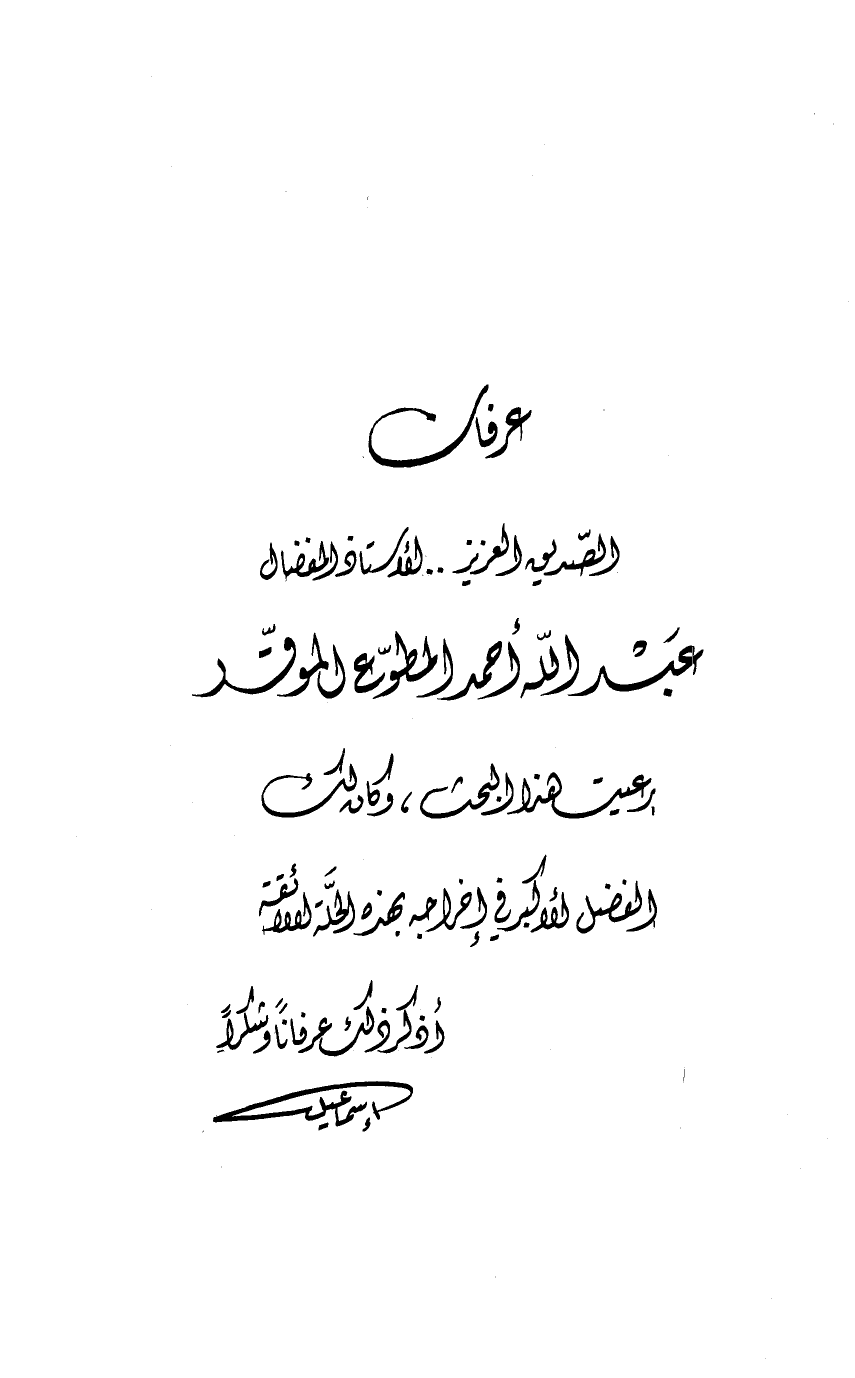 عرفان
الصّديق العزيز .. الأستاذ المفضال
عبْد اللّه أحمد المطوّع الموقّر
رعيت هذا البحث ، وكان لك
الفضل الأكبر في إخراجه بهذه الحلَّة اللائقة
أذكر ذلك عرفانًا وشكرًا
إسماعيل